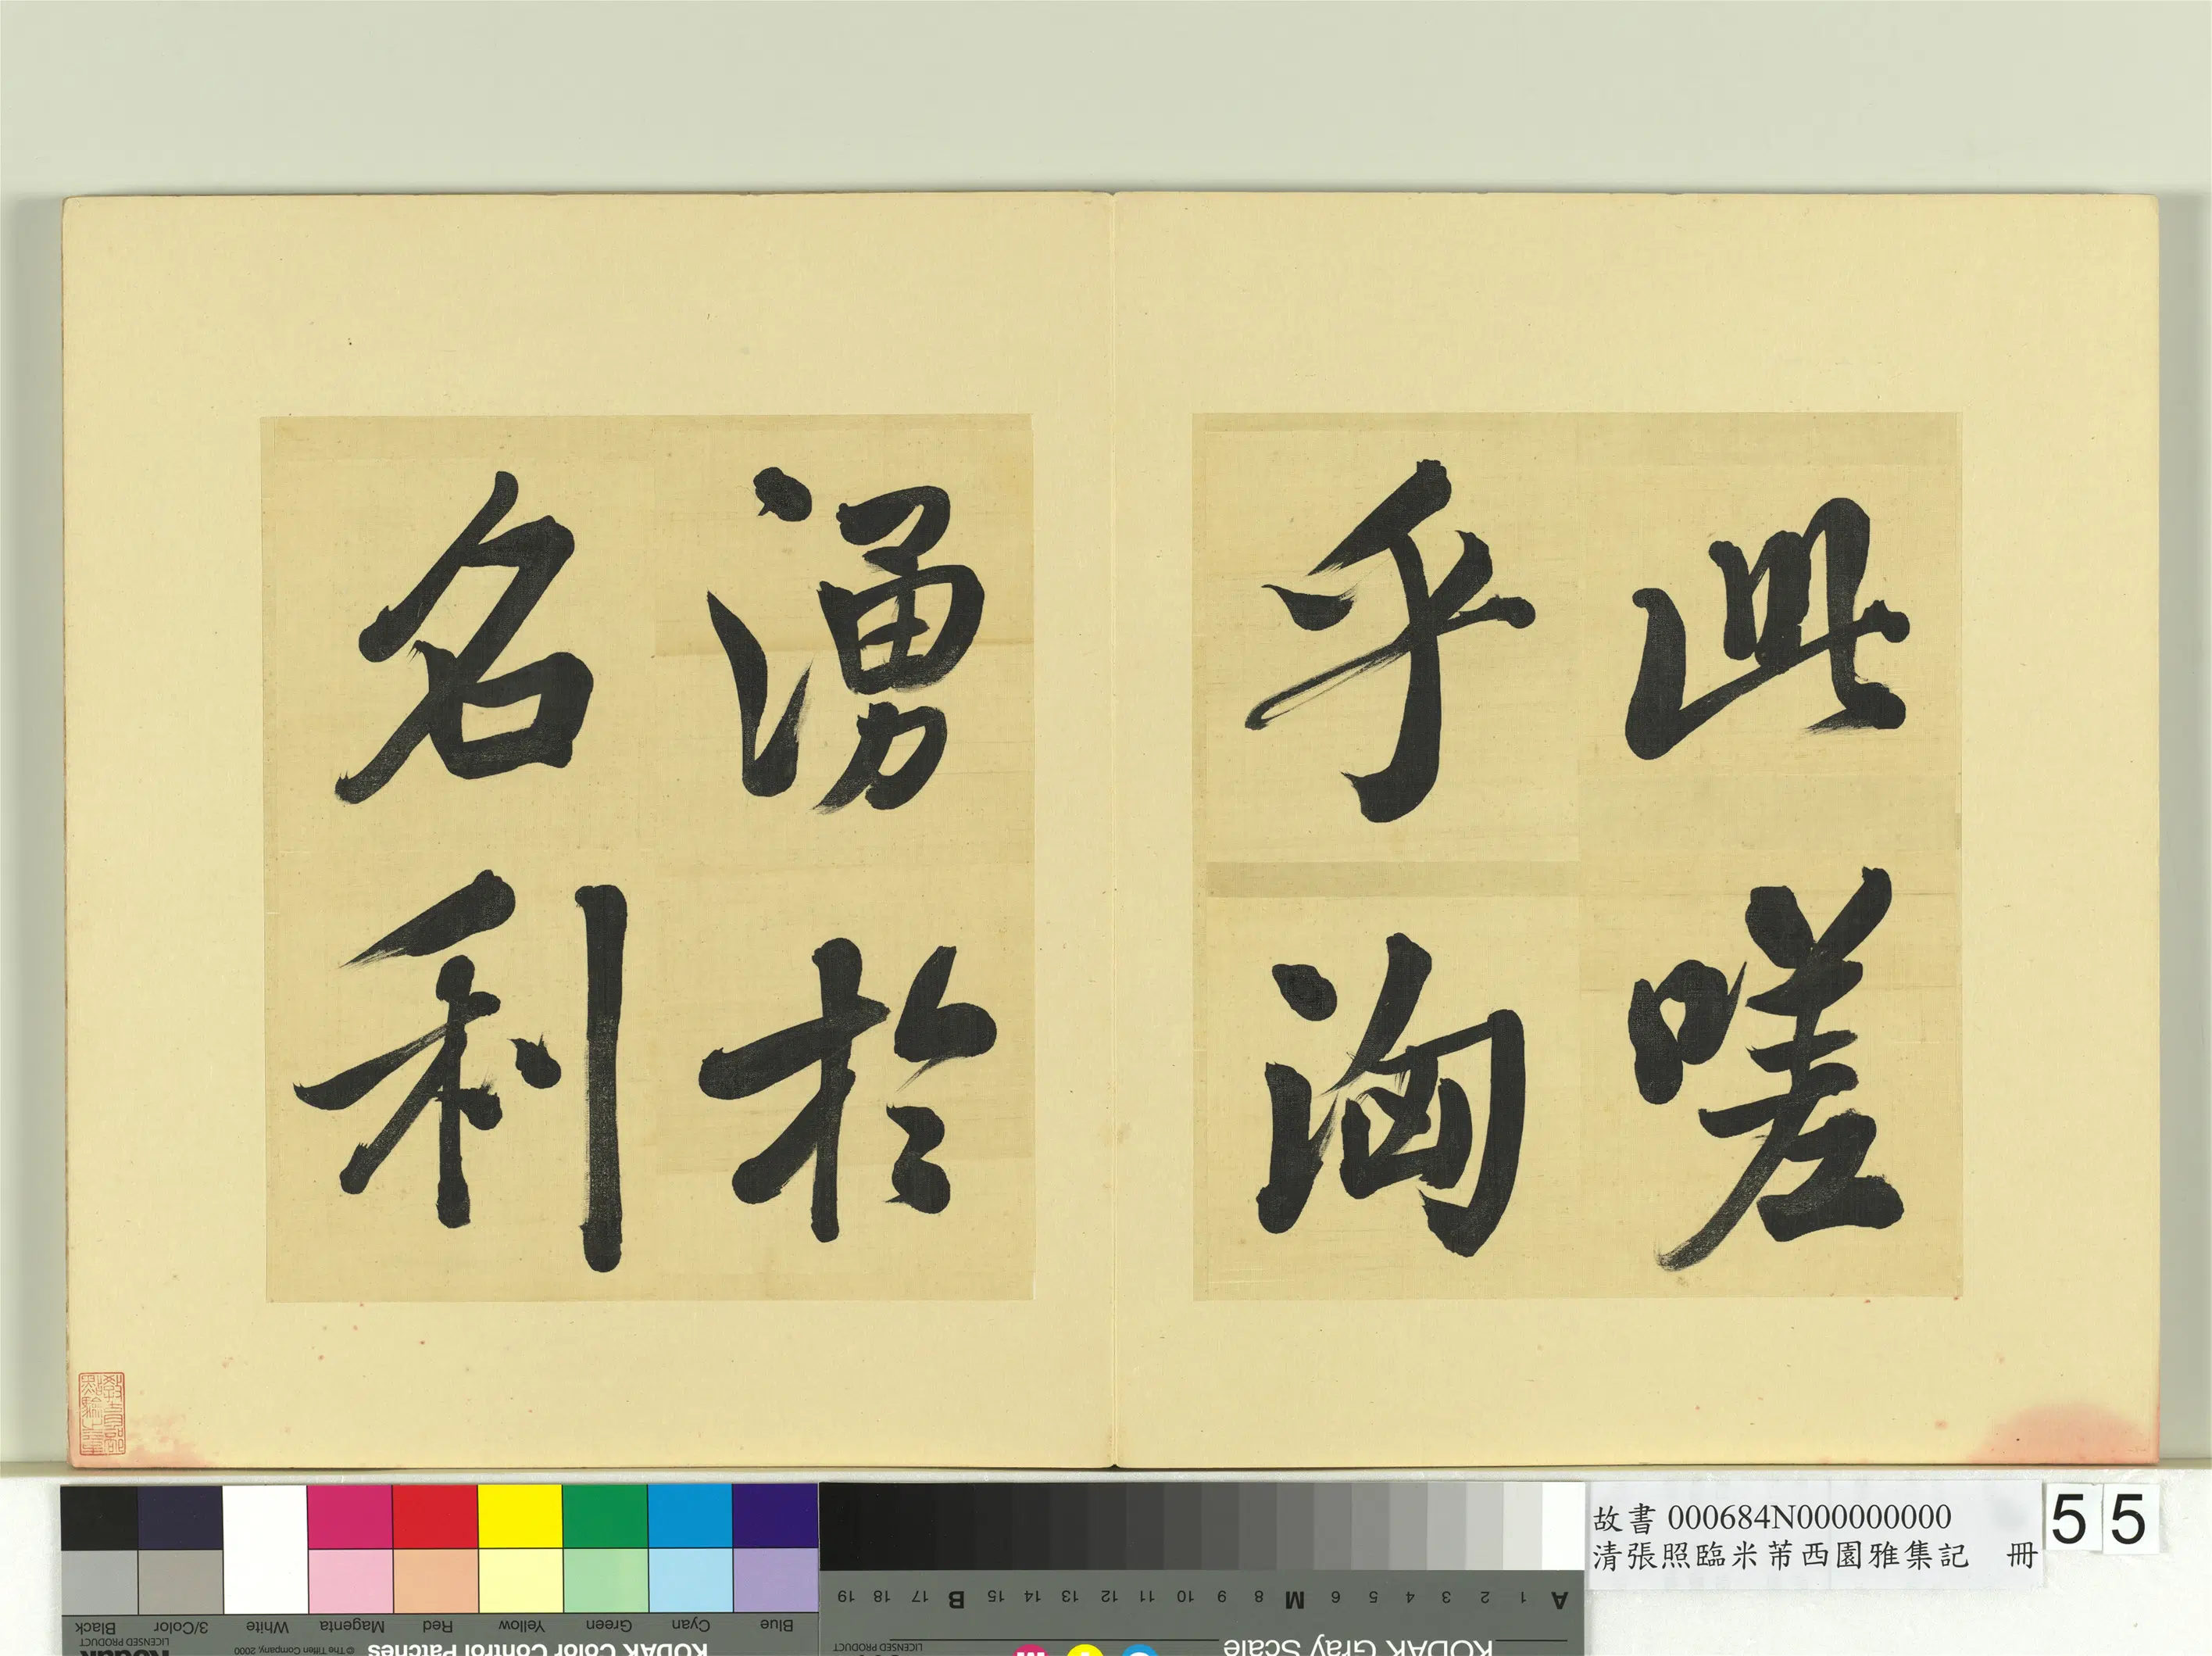 此嗟
乎洶
湧於
名利
教育部
點驗之章
故書 000684N000000000
清張照臨米芾西園雅集記 冊
55
Black
3/Color
White
Magenta
Red
Yellow
Green
Cyan
Blue
LICENSED PRODUCT
© The Tiffen Company, 2000
KODAK Color Control Patches
Kodak
A 1 2 3 4 5 6 M 8 9 10 11 12 13 14 15 B 17 18 19
KODAK Gray Scale
LICENSED PRODUCT